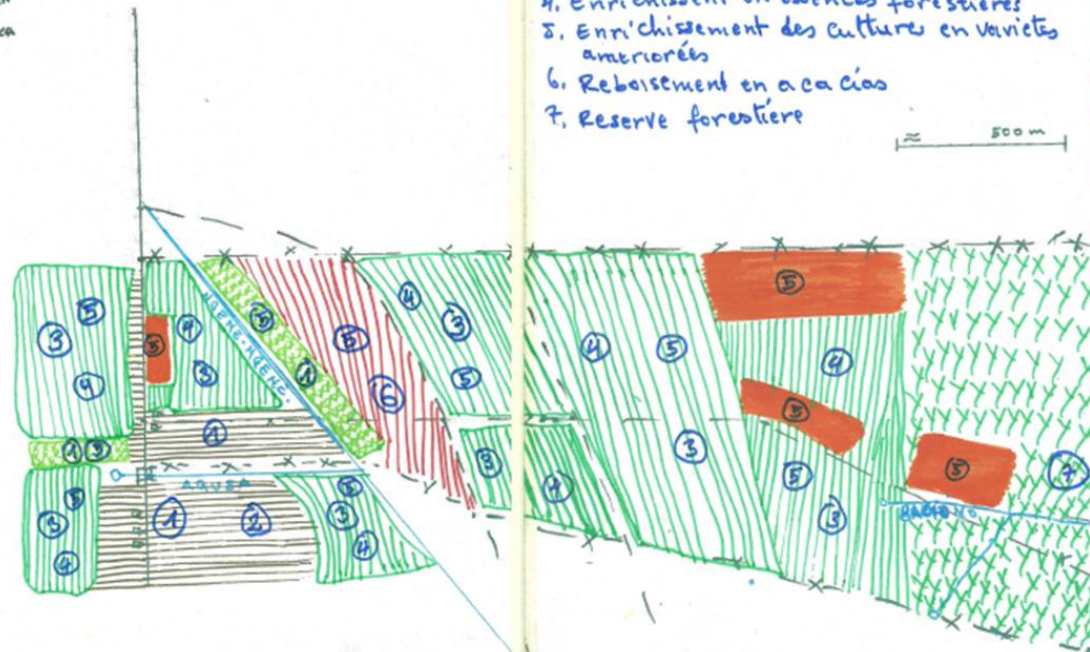 4. Enrichissent en essences forestières
5. Enrichissement des cultures en varietes
ameriorées
6. Reboisement en acacias
7. Reserve forestière
≈ 500 m
5
4
5
3
5
4
3
5
3
4
5
4
5
3
5
4
3
4
1
5
6
5
1
3
3
4
3
5
5
7
1
3
5
3
4
1
2
5
3
4
5
3